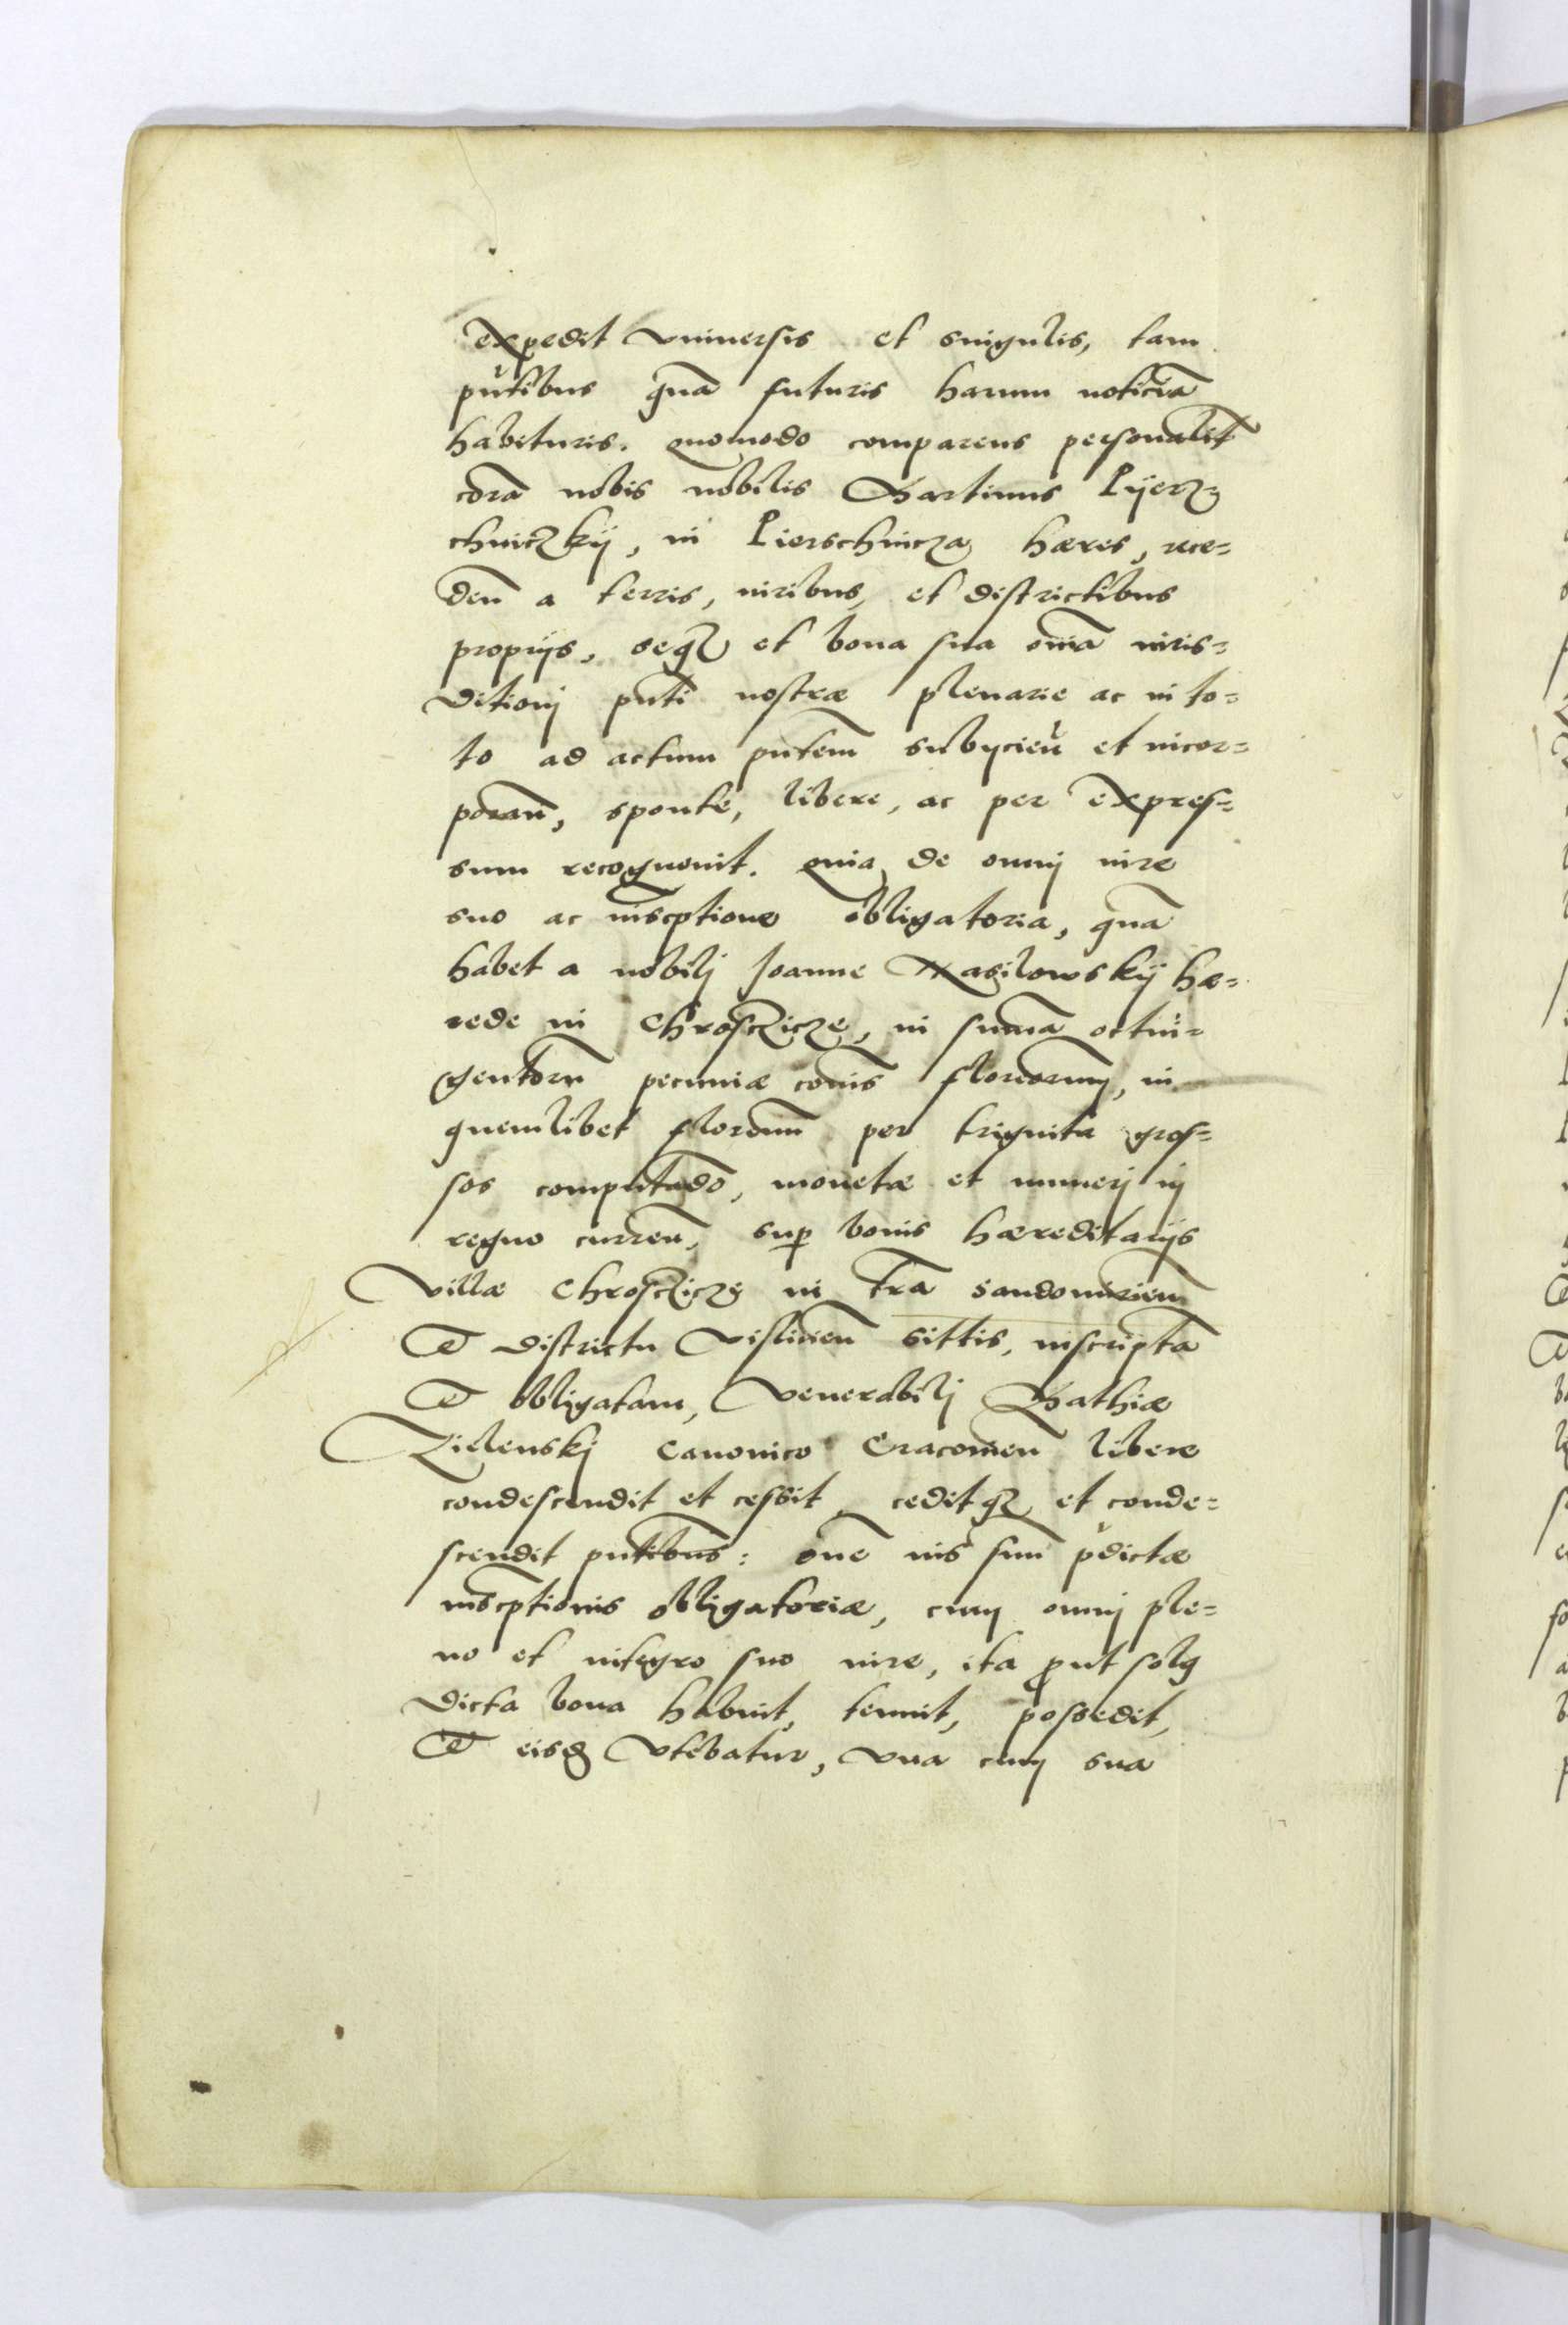 expedit vniuersis et singulis, tam
pñtibus quã futuris harum noticiã
habituris. Quomodo comparens personalit̃
corã nobis nobilis Martinus Pÿerz-
chniczkÿ, in Pierschnicza hæres, rece-
deñ a terris, iuribus, et districtibus
proprijs, seq₃ et bona sua oĩa iuris-
ditionj pñti nostræ plenarie ac in to-
to ad actum pñtem subijcieñ et incor-
porañ, sponte, libere, ac per expres-
sum recognouit. Quia de omnj iure
suo ac inscptione obligatoria, quã
habet a nobilj Joanne Masilowskÿ hæ-
rede in Chrosczicze, in suma octin-
gentorũ pecuniæ cõnis florenorum, in
quemlibet florenum per triginta gros-
sos computãdo, monetæ et numerj in
regno curreñ, sup bonis hæreditarijs
Villæ Chrosczicze in tra Sandomirieñ
Et districtu Vislicieñ sittis, inscriptã
Et obligatam, Venerabilj Mathiæ
Zielenskj Canonico Cracouieñ libere
condescendit et cessit, ceditq₃ et conde-
scendit pñtibus: om̃e ius suũ p̃dictæ
inscptionis obligatoriæ, cum omnj ple-
no et integro suo iure, ita prout solus
dicta bona habuit, tenuit, possedit,
Et eisdẽ vtebatur, vna cum sua